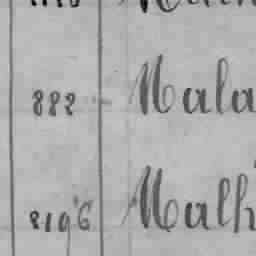 888 Mala
8196 Malh